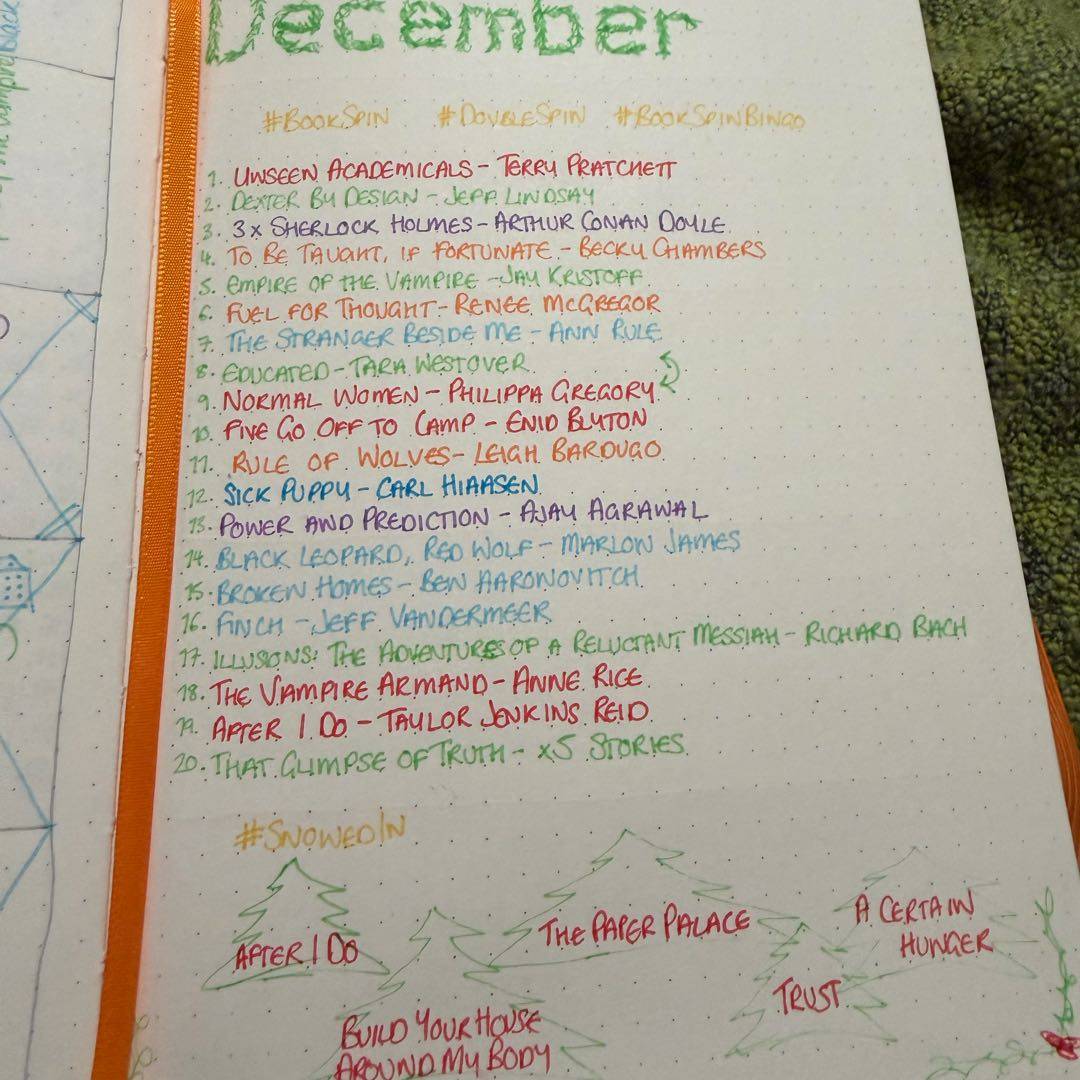 December
#BookSpin #DoubleSpin #BookSpinBingo
1. Unseen Academicals - Terry Pratchett
2. Dexter By Design - Jeff Lindsay
3. 3x Sherlock Holmes - Arthur Conan Doyle
4. To Be Taught, If Fortunate - Becky Chambers
5. Empire of the Vampire - Jay Kristoff
6. Fuel for Thought - Renee McGregor
7. The Stranger Beside Me - Ann Rule
8. Educated - Tara Westover
9. Normal Women - Philippa Gregory
10. Five Go Off To Camp - Enid Blyton
11. Rule of Wolves - Leigh Bardugo
12. Sick Puppy - Carl Hiaasen
13. Power and Prediction - Ajay Agrawal
14. Black Leopard, Red Wolf - Marlon James
15. Broken Homes - Ben Aaronovitch
16. Finch - Jeff Vandermeer
17. Illusions: The Adventures of a Reluctant Messiah - Richard Bach
18. The Vampire Armand - Anne Rice
19. After I Do - Taylor Jenkins Reid
20. That Glimpse of Truth - x5 Stories
#SnowedIn
After I Do
The Paper Palace
A Certain
Hunger
Trust
Build Your House
Around My Body